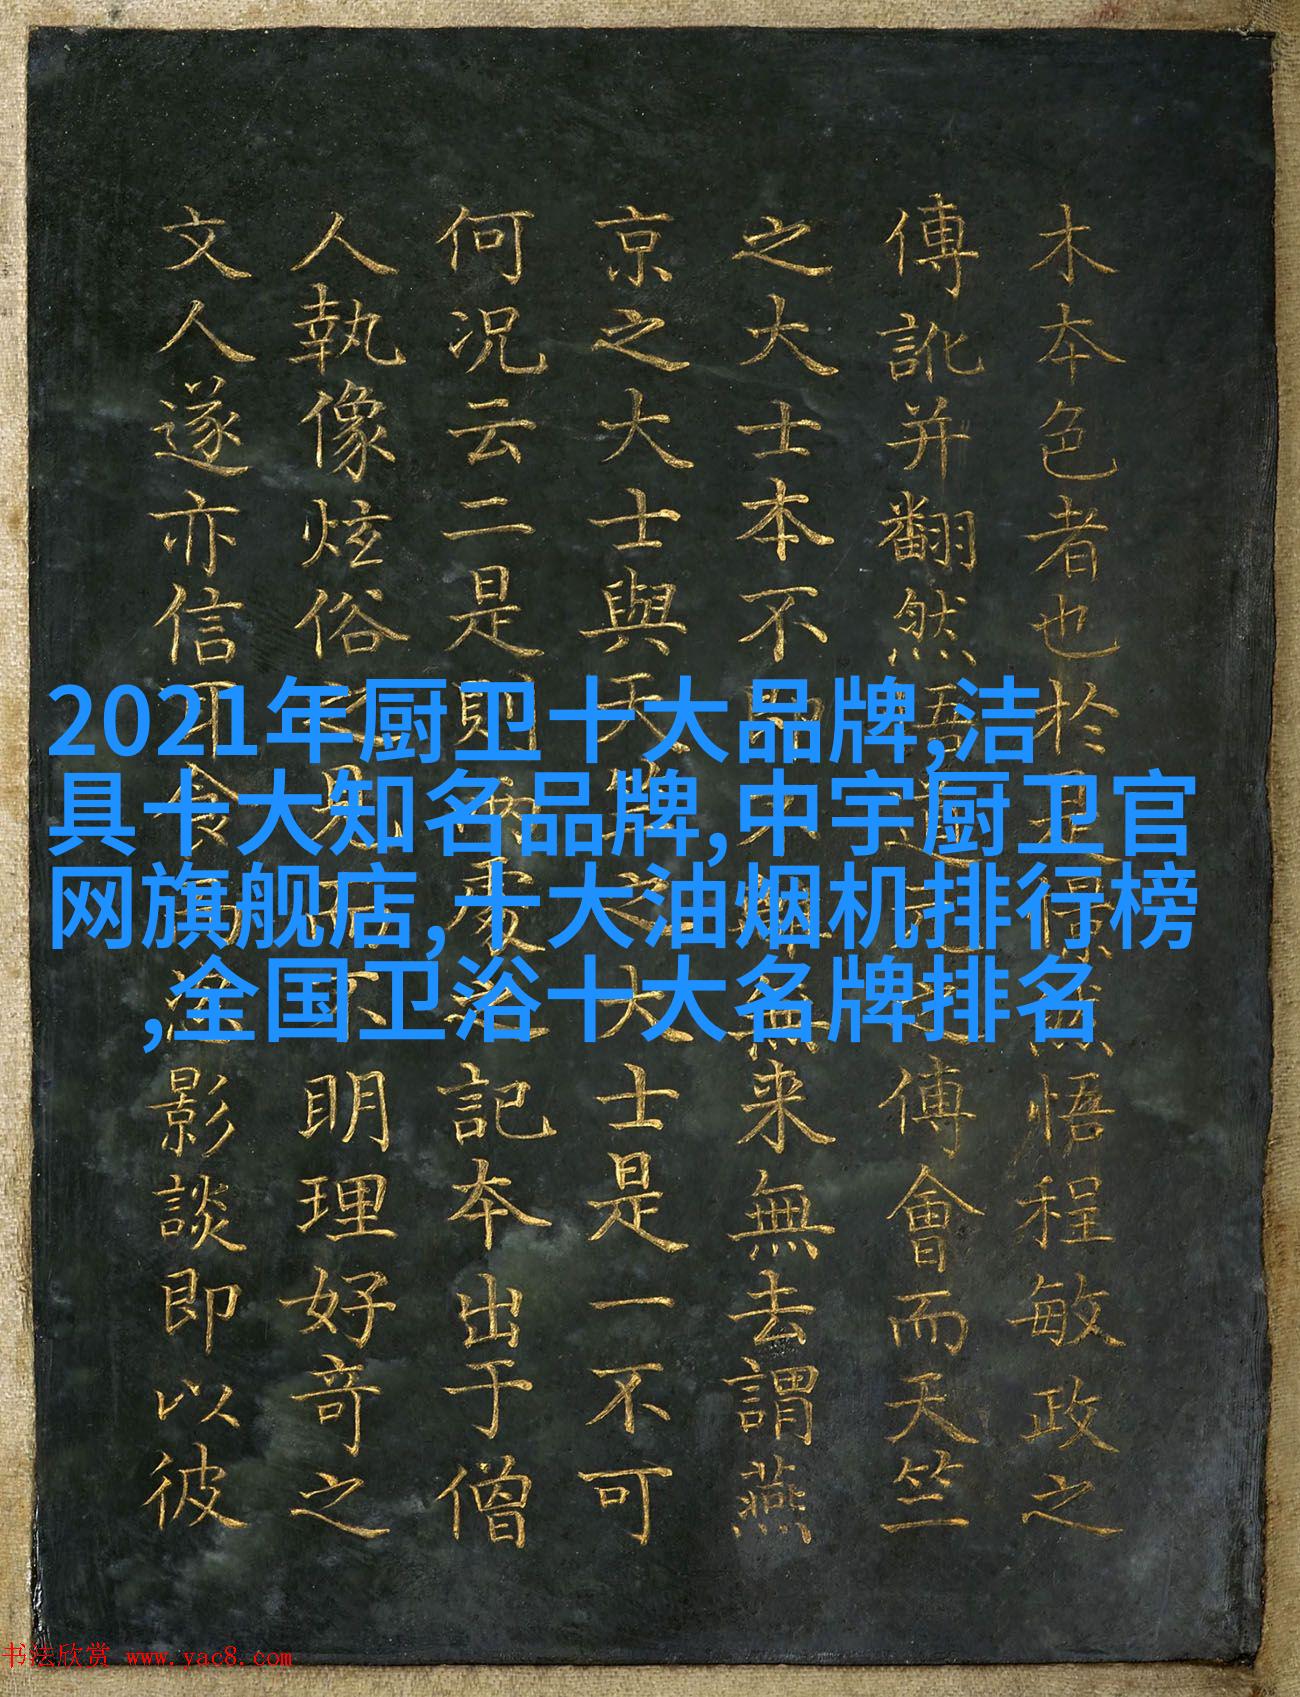 木夲色者也於悟程敏政之
傅訛并翻然傅會而天竺
之大士本不来無去謂燕
京之大士與天竺之大士是一不可
何况云二是則記夲出于僧
人執像炫俗不明理好竒之
文人遂亦信可影談即以彼
2021年厨卫十大品牌,洁
具十大知名品牌,中宇厨卫官
网旗舰店,十大油烟机排行榜
,全国卫浴十大名牌排名
书法欣赏 www.yac8.com